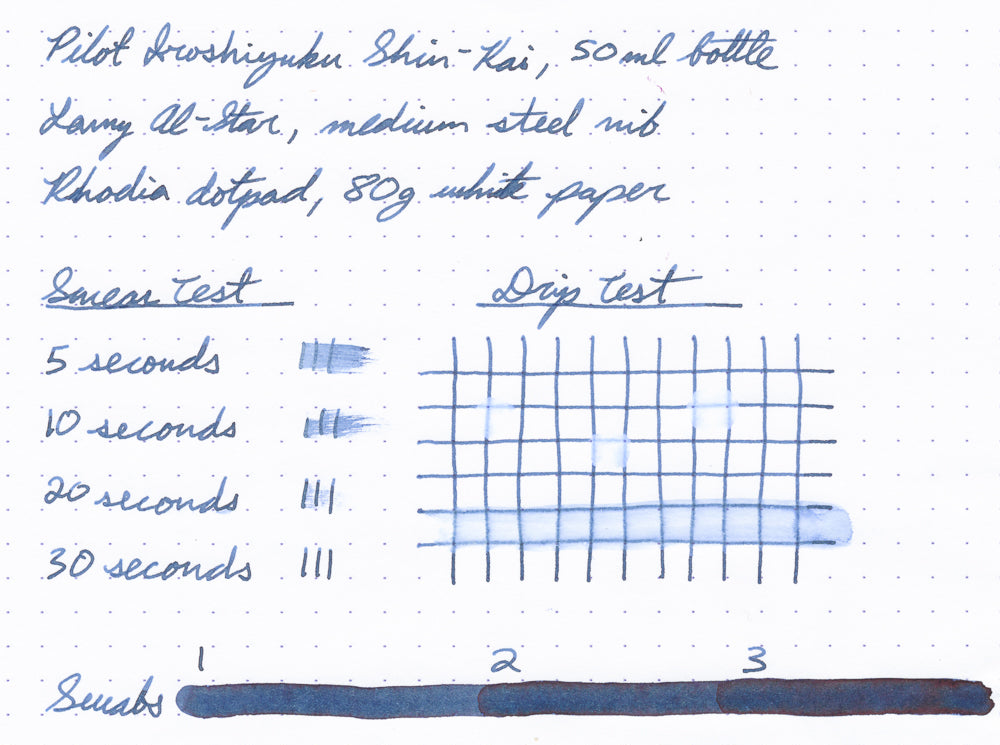 Pilot Iroshizuku Shin-Kai, 50ml bottle
Lamy Al-Star, medium steel nib
Rhodia dotpad, 80g white paper
Smear Test
Drip Test
5 seconds
10 seconds
20 seconds
30 seconds
1 2 3
Swabs